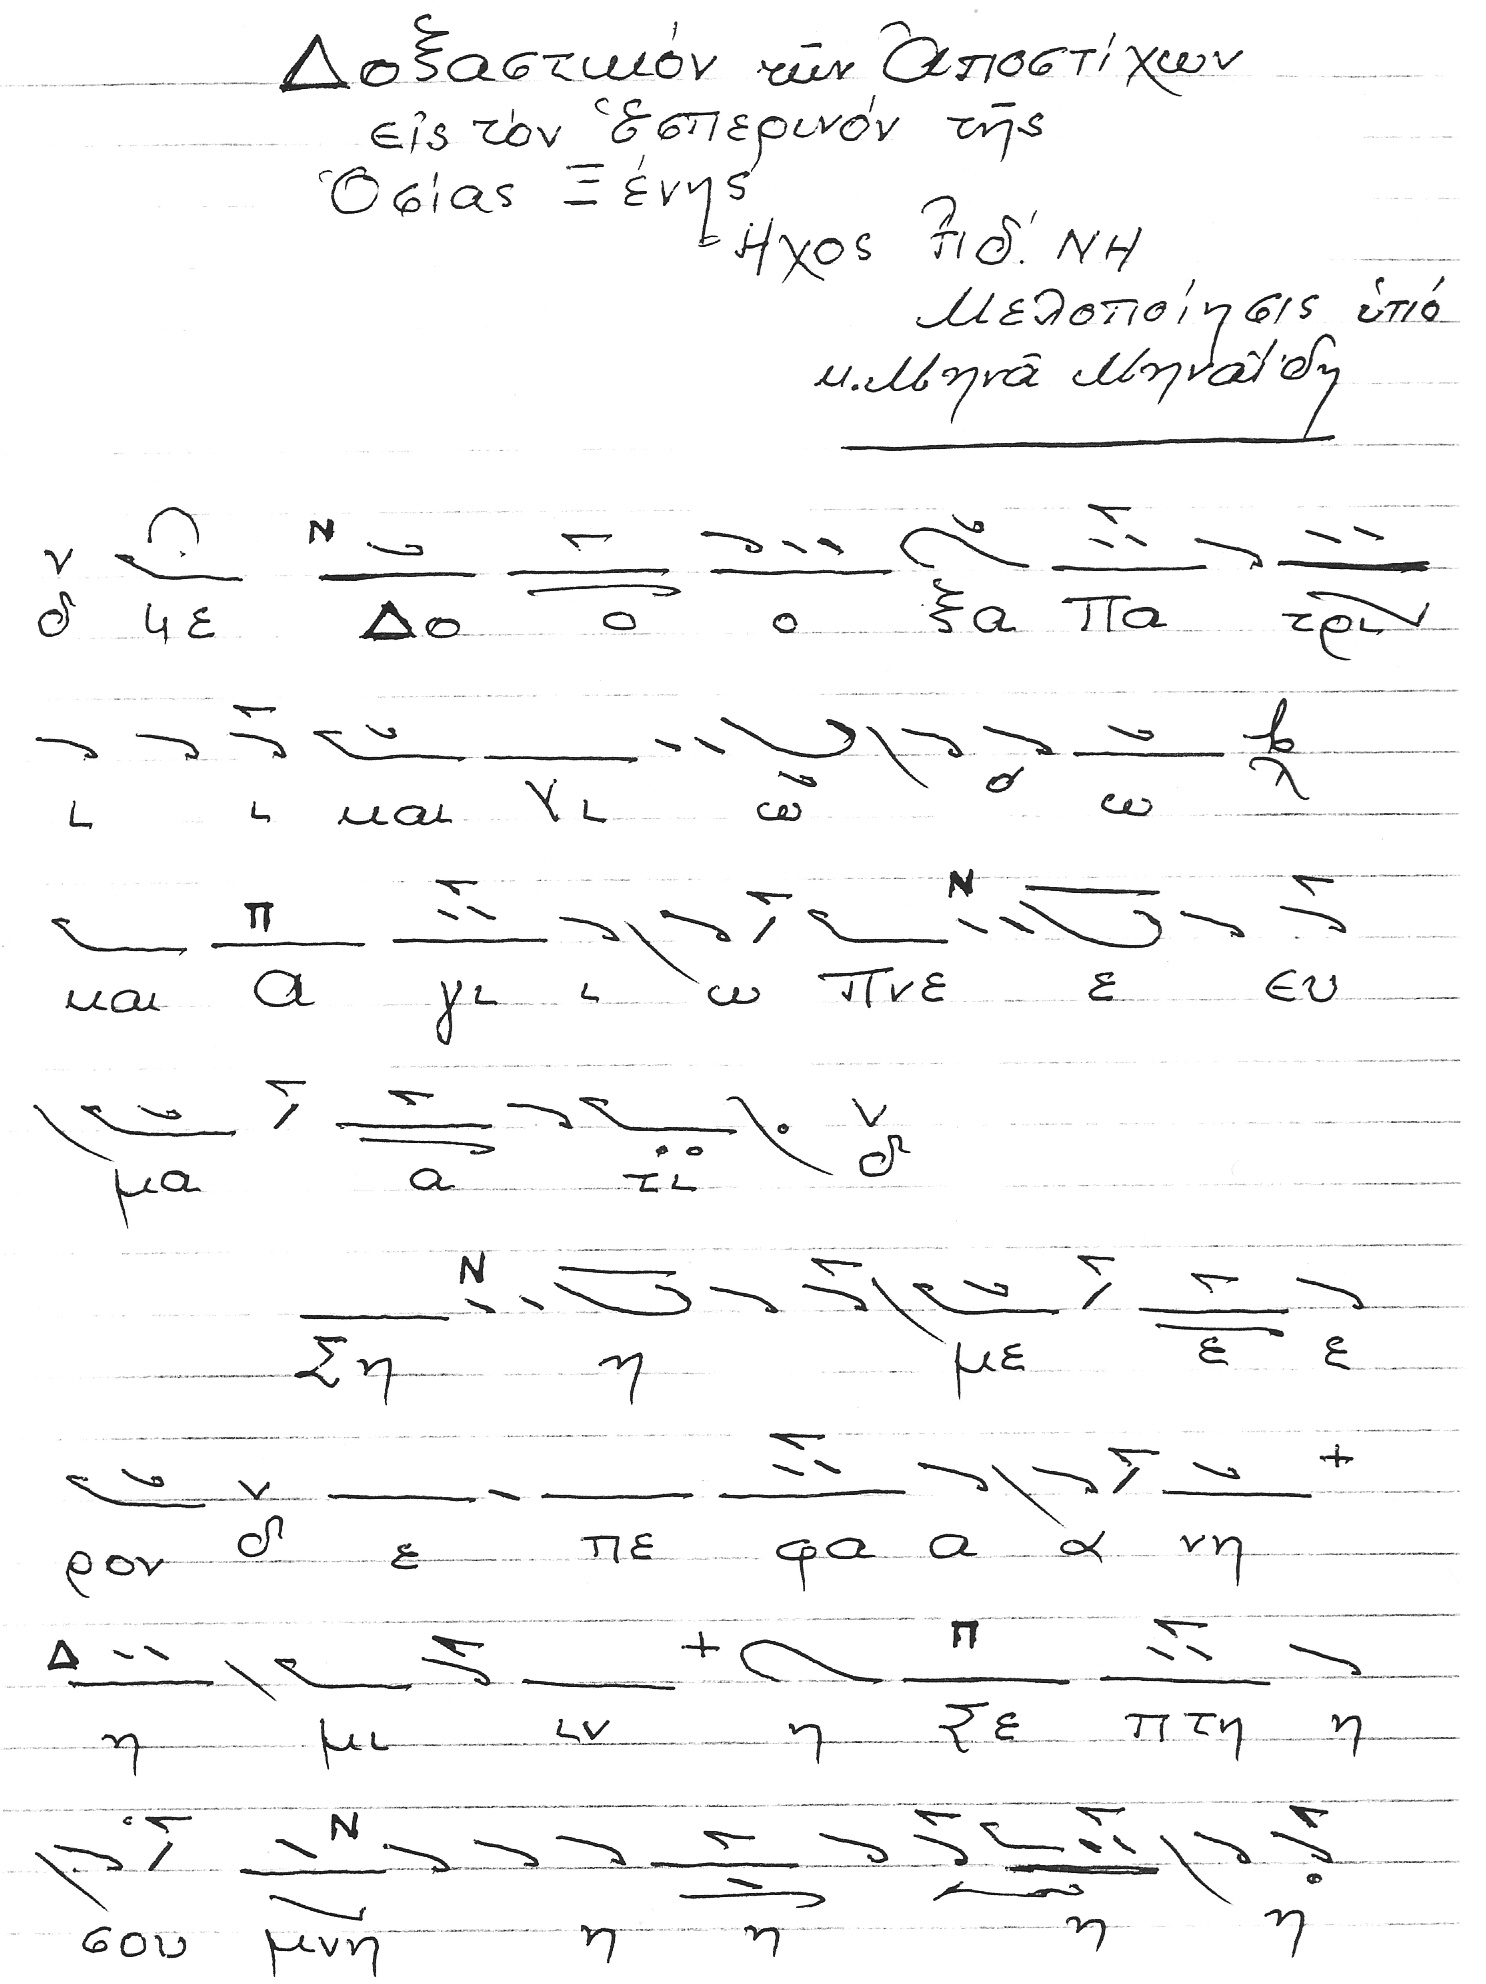 Δοξαστικόν τῶν Ἀποστίχων
εἰς τὸν Ἑσπερινόν τῆς
Ὁσίας Ξένης
Ηχος πλ δ΄. ΝΗ
Μελοποίησις ὑπό
κ. Μηνᾶ Μηναΐδη
Νε Δο ο ο ξα Πα τρι
ι ι και Υι ω ω
και α γι ι ω Πνε ε ευ
μα α τι
Ση η με ε ε
ρον ε πε φα α α νη
η μι ιν η σε πτη η
σου μνη η η η η